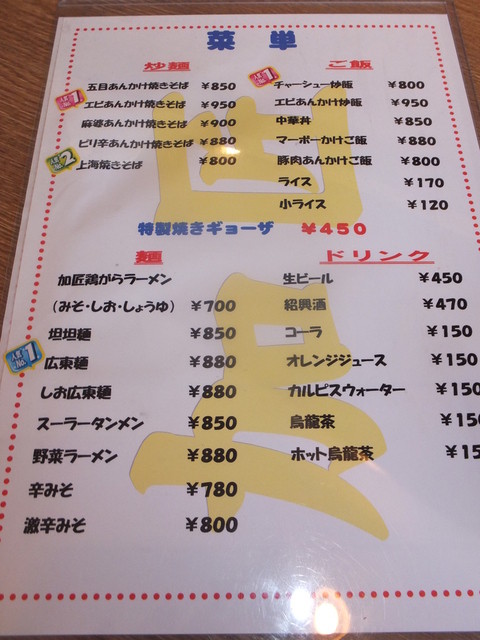 菜 単
炒麺
五目あんかけ焼きそば ¥850
エビあんかけ焼きそば ¥950
麻婆あんかけ焼きそば ¥900
ピリ辛あんかけ焼きそば ¥880
上海焼きそば ¥800
ご飯
チャーシュー炒飯 ¥800
エビあんかけ炒飯 ¥950
中華丼 ¥850
マーボーかけご飯 ¥880
豚肉あんかけご飯 ¥800
ライス ¥170
小ライス ¥120
特製焼きギョーザ ¥450
麺
加匠鶏がらラーメン
(みそ・しお・しょうゆ) ¥700
坦坦麺 ¥850
人気 No.1
広東麺 ¥880
しお広東麺 ¥880
スーラータンメン ¥850
野菜ラーメン ¥880
辛みそ ¥780
激辛みそ ¥800
ドリンク
生ビール ¥450
紹興酒 ¥470
コーラ ¥150
オレンジジュース ¥150
カルピスウォーター ¥150
烏龍茶 ¥150
ホット烏龍茶 ¥15